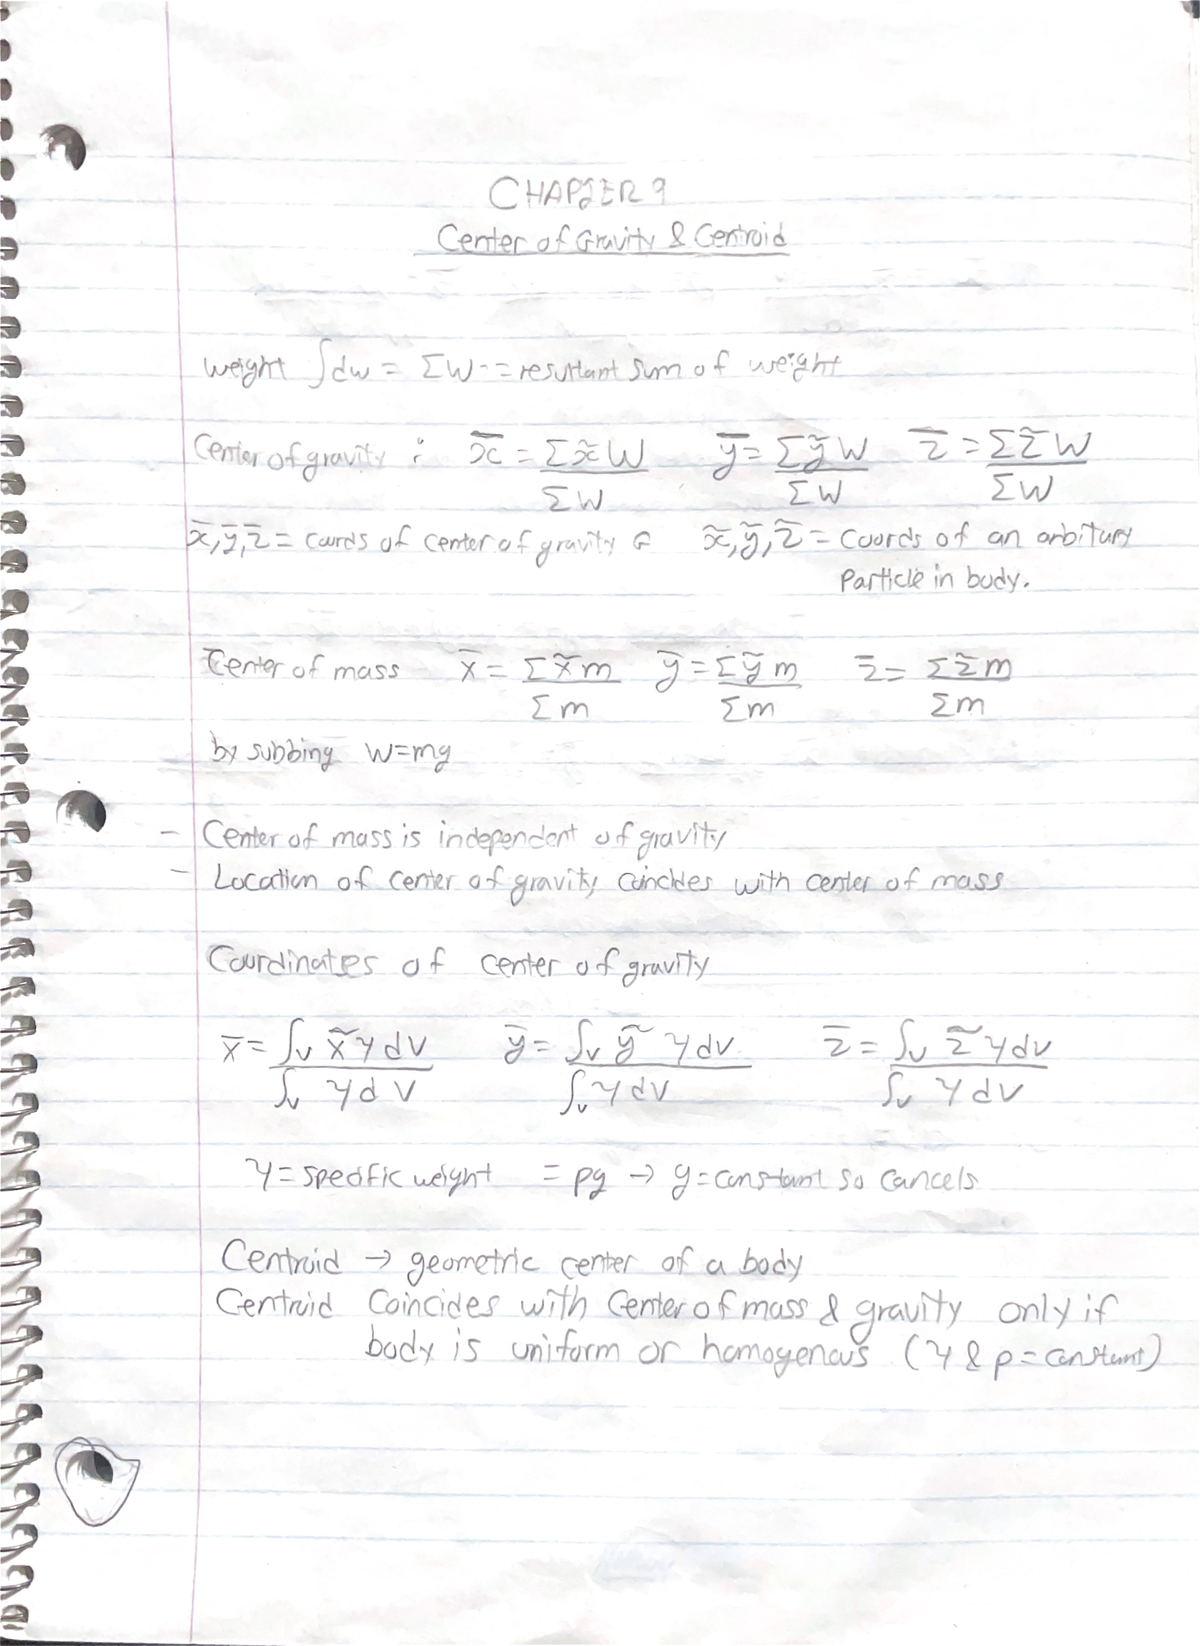 CHAPTER 9
Center of Gravity & Centroid
weight ∫dw = ΣW -= resultant sum of weight
Center of gravity : x̄ = Σx̃W / ΣW ȳ = ΣỹW / ΣW z̄ = Σz̃W / ΣW
x̄, ȳ, z̄ = coords of center of gravity G x̃, ỹ, z̃ = coords of an arbitury
particle in body.
Center of mass x̄ = Σx̃m / Σm ȳ = Σỹm / Σm z̄ = Σz̃m / Σm
by subbing W=mg
- Center of mass is independent of gravity
- Location of center of gravity coincides with center of mass
Coordinates of center of gravity
x̄ = ∫v x̃γdV / ∫v γdV ȳ = ∫v ỹ γdv / ∫v γdV z̄ = ∫v z̃γdv / ∫v γdV
γ = specific weight = ρg → g = constant so cancels
Centroid → geometric center of a body
Centroid Coincides with Center of mass & gravity only if
body is uniform or homogenous (γ & ρ = constant)